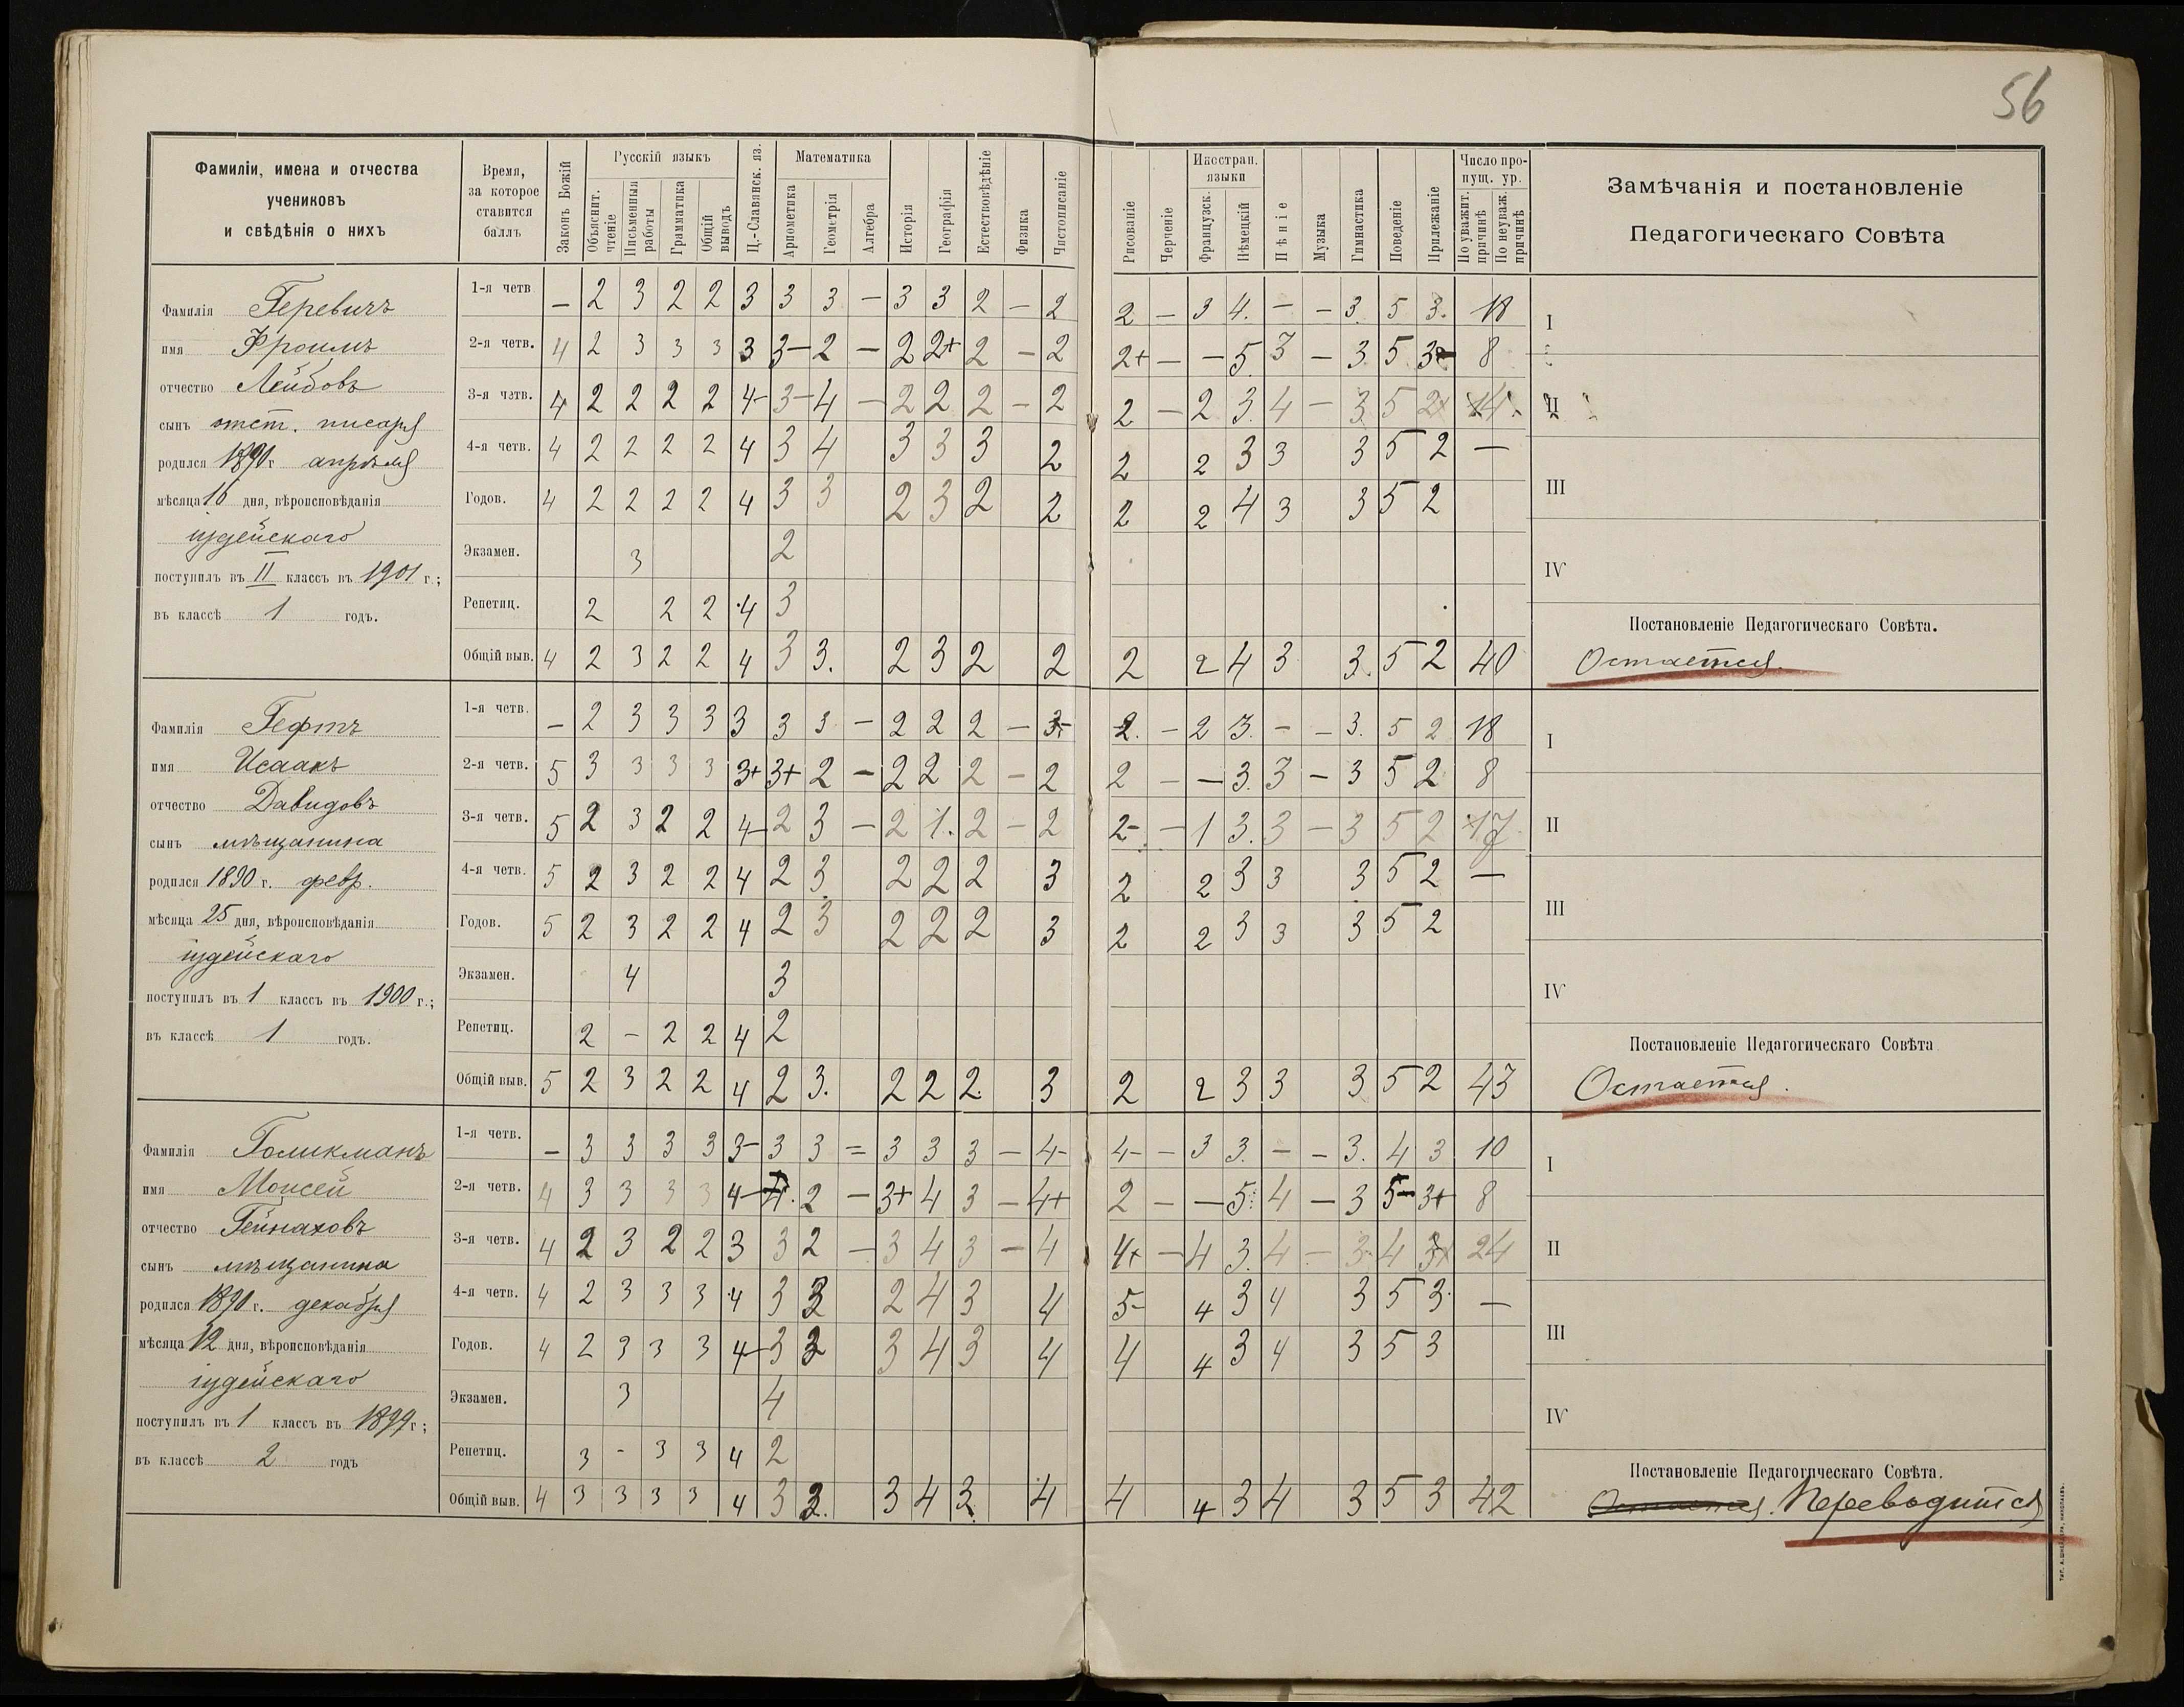 56
Фамиліи, имена и отчества
учениковъ
и свѣдѣнія о нихъ
Время,
за которое
ставится
баллъ
Законъ Божій
Русскій языкъ
Объяснит.
чтеніе
Письменныя
работы
Грамматика
Общій
выводъ
Ц.-Славянск. яз.
Математика
Ариѳметика
Геометрія
Алгебра
Исторія
Географія
Естествовѣдѣніе
Физика
Чистописаніе
Рисованіе
Черченіе
Иностран.
языки
Французск.
Нѣмецкій
Пѣніе
Музыка
Гимнастика
Поведеніе
Прилежаніе
Число про-
пущ. ур.
По уважит.
причинѣ
По неуваж.
причинѣ
Замѣчанія и постановленіе
Педагогическаго Совѣта
Фамилія Геревичъ
имя Фроимъ
отчество Лейбовъ
сынъ отст. писаря
родился 1890 г. апрѣля
мѣсяца 16 дня, вѣроисповѣданія
іудейскаго
поступилъ въ II классъ въ 1901 г.;
въ классѣ 1 годъ.
1-я четв. — 2 3 2 2 3 3 3 — 3 3 2 — 2 2 — 3 4. — — 3. 5 3. 18
2-я четв. 4 2 3 3 3 3 3— 2 — 2 2+ 2 — 2 2+ — — 5. 3 — 3 5 3 8
3-я четв. 4 2 2 2 2 4- 3- 4 — 2 2 2 — 2 2 — 2 3. 4 — 3 5 2 14
4-я четв. 4 2 2 2 2 4 3 4 3 3 3 2 2 2 3 3 3 5 2 —
Годов. 4 2 2 2 2 4 3 3 2 3 2 2 2 2 4 3 3 5 2
Экзамен. 3 2
Репетиц. 2 2 2 4 3
Общій выв. 4 2 3 2 2 4 3 3. 2 3 2 2 2 2 4 3 3. 5 2 40
I
II
III
IV
Постановленіе Педагогическаго Совѣта.
Остается.
Фамилія Гефтъ
имя Исаакъ
отчество Давидовъ
сынъ мѣщанина
родился 1890 г. февр.
мѣсяца 25 дня, вѣроисповѣданія
іудейскаго
поступилъ въ 1 классъ въ 1900 г.;
въ классѣ 1 годъ.
1-я четв. — 2 3 3 3 3 3 3 — 2 2 2 — 3- 2. — 2 3. — — 3. 5 2 18
2-я четв. 5 3 3 3 3 3+ 3+ 2 — 2 2 2 — 2 2 — — 3. 3 — 3 5 2 8
3-я четв. 5 2 3 2 2 4- 2 3 — 2 1. 2 — 2 2- — 1 3. 3 — 3 5 2 17
4-я четв. 5 2 3 2 2 4 2 3. 2 2 2 3 2 2 3 3 3 5 2 —
Годов. 5 2 3 2 2 4 2 3 2 2 2 3 2 2 3 3 3 5 2
Экзамен. 4 3
Репетиц. 2 — 2 2 4 2
Общій выв. 5 2 3 2 2 4 2 3. 2 2 2. 3 2 2 3 3 3 5 2 43
I
II
III
IV
Постановленіе Педагогическаго Совѣта
Остается.
Фамилія Голикманъ
имя Моисей
отчество Гейнаховъ
сынъ мѣщанина
родился 1890 г. декабря
мѣсяца 12 дня, вѣроисповѣданія
іудейскаго
поступилъ въ 1 классъ въ 1899 г;
въ классѣ 2 годъ
1-я четв. — 3 3 3 3 3- 3 3 = 3 3 3 — 4- 4- — 3 3. — — 3. 4 3 10
2-я четв. 4 3 3 3 3 4- 4. 2 — 3+ 4 3 — 4+ 2 — — 5. 4 — 3 5- 3+ 8
3-я четв. 4 2 3 2 2 3 3 2 — 3 4 3 — 4 4+ — 4 3. 4 — 3. 4 3 24
4-я четв. 4 2 3 3 3 4 3 3 2 4 3 4 5- 4 3 4 3 5 3. —
Годов. 4 2 3 3 3 4- 3 3 3 4 3 4 4 4 3 4 3 5 3
Экзамен. 3 4
Репетиц. 3 - 3 3 4 2
Общій выв. 4 3 3 3 3 4 3 3. 3 4 3. 4 4 4 3 4 3 5 3 42
I
II
III
IV
Постановленіе Педагогическаго Совѣта.
Остается. Переводится